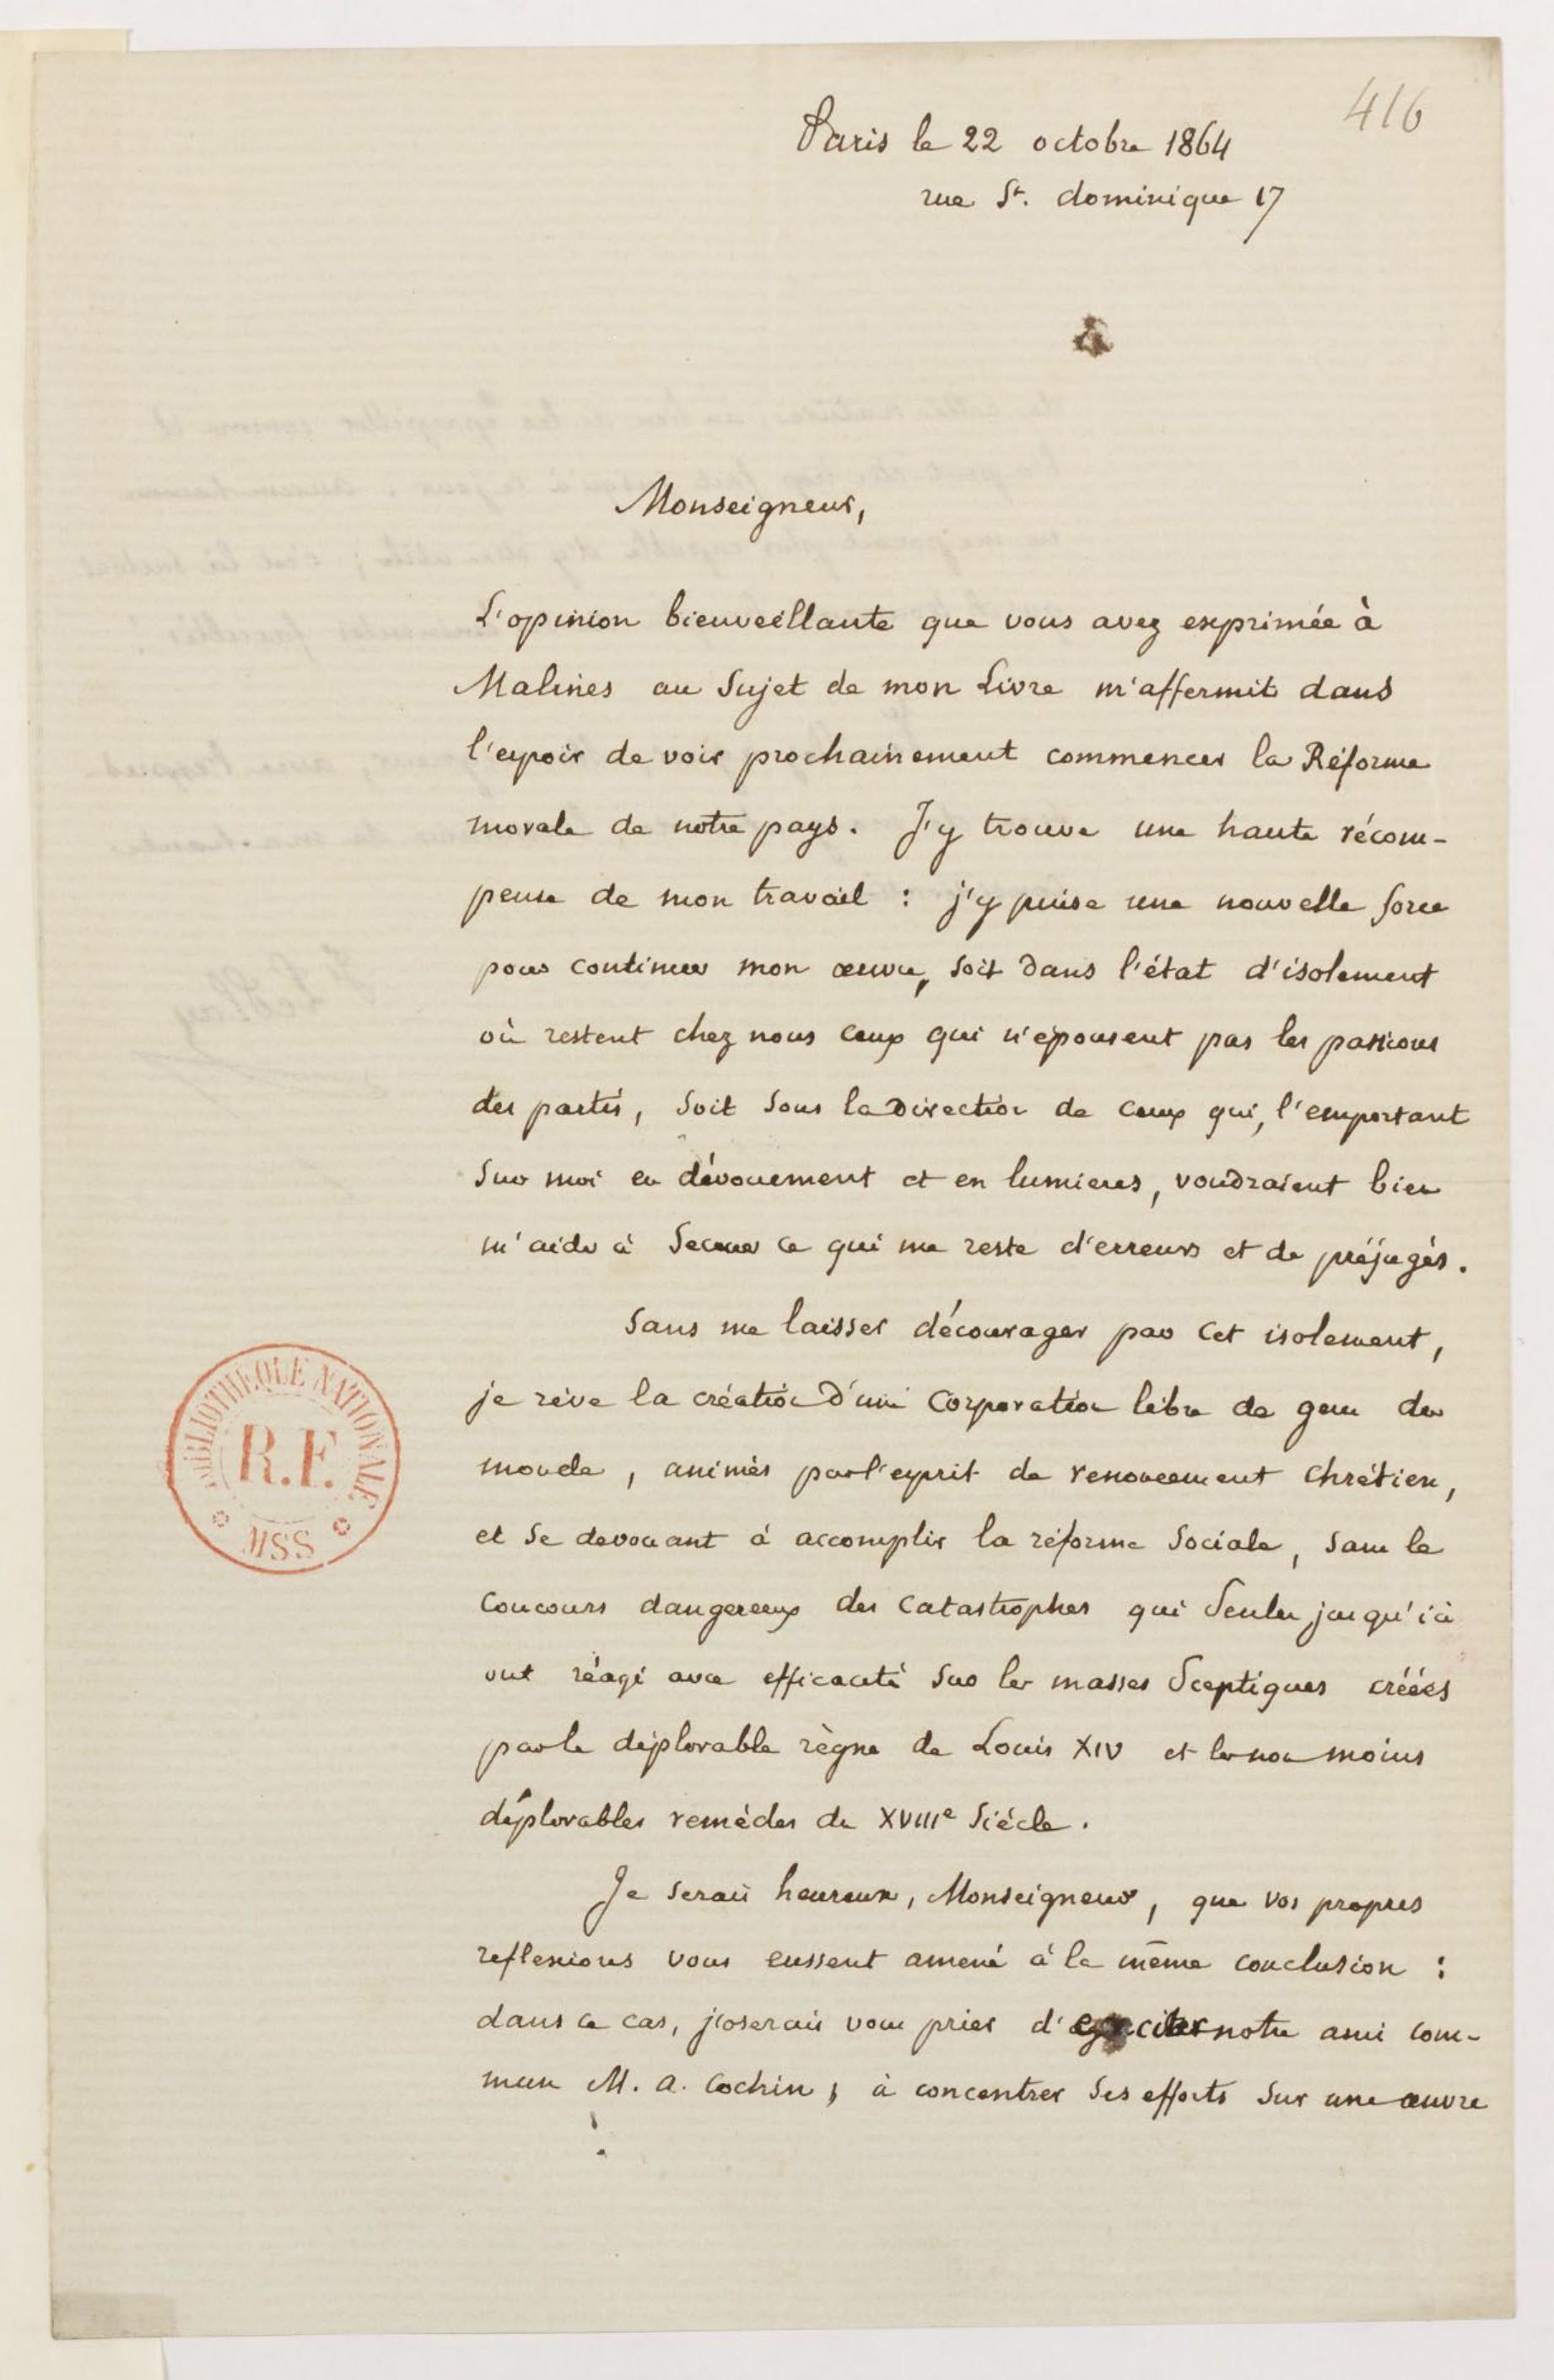 416
Paris le 22 octobre 1864
rue St. dominique 17
Monseigneur,
L'opinion bienveillante que vous avez exprimée à
Malines au Sujet de mon Livre m'affermit dans
l'espoir de voir prochainement commencer la Réforme
morale de notre pays. J'y trouve une haute récom-
pense de mon travail : j'y puise une nouvelle force
pour continuer mon œuvre, soit dans l'état d'isolement
où restent chez nous ceux qui n'épousent pas les passions
des partis, soit sous la Direction de ceux qui, l'emportant
sur moi en dévouement et en lumieres, voudraient bien
m'aider à secouer ce qui me reste d'erreurs et de préjugés.
Sans me laisser décourager par cet isolement,
je rêve la création d'une corporation libre de gens du
monde, animés par l'esprit de renoncement chrétien,
et se devouant à accomplir la réforme Sociale, sans le
concours dangereux des catastrophes qui seules jusqu'ici
ont réagi avec efficacité sur les masses sceptiques créées
par le déplorable règne de Louis XIV et les non moins
déplorables remèdes du XVIIIe Siécle.
Je serais heureux, Monseigneur, que vos propres
reflexions vous eussent amené à la même conclusion :
dans ce cas, j'oserais vous prier d' notre ami com-
mun M. A. Cochin, à concentrer ses efforts sur une œuvre
BIBLIOTHEQUE NATIONALE
R.F.
MSS